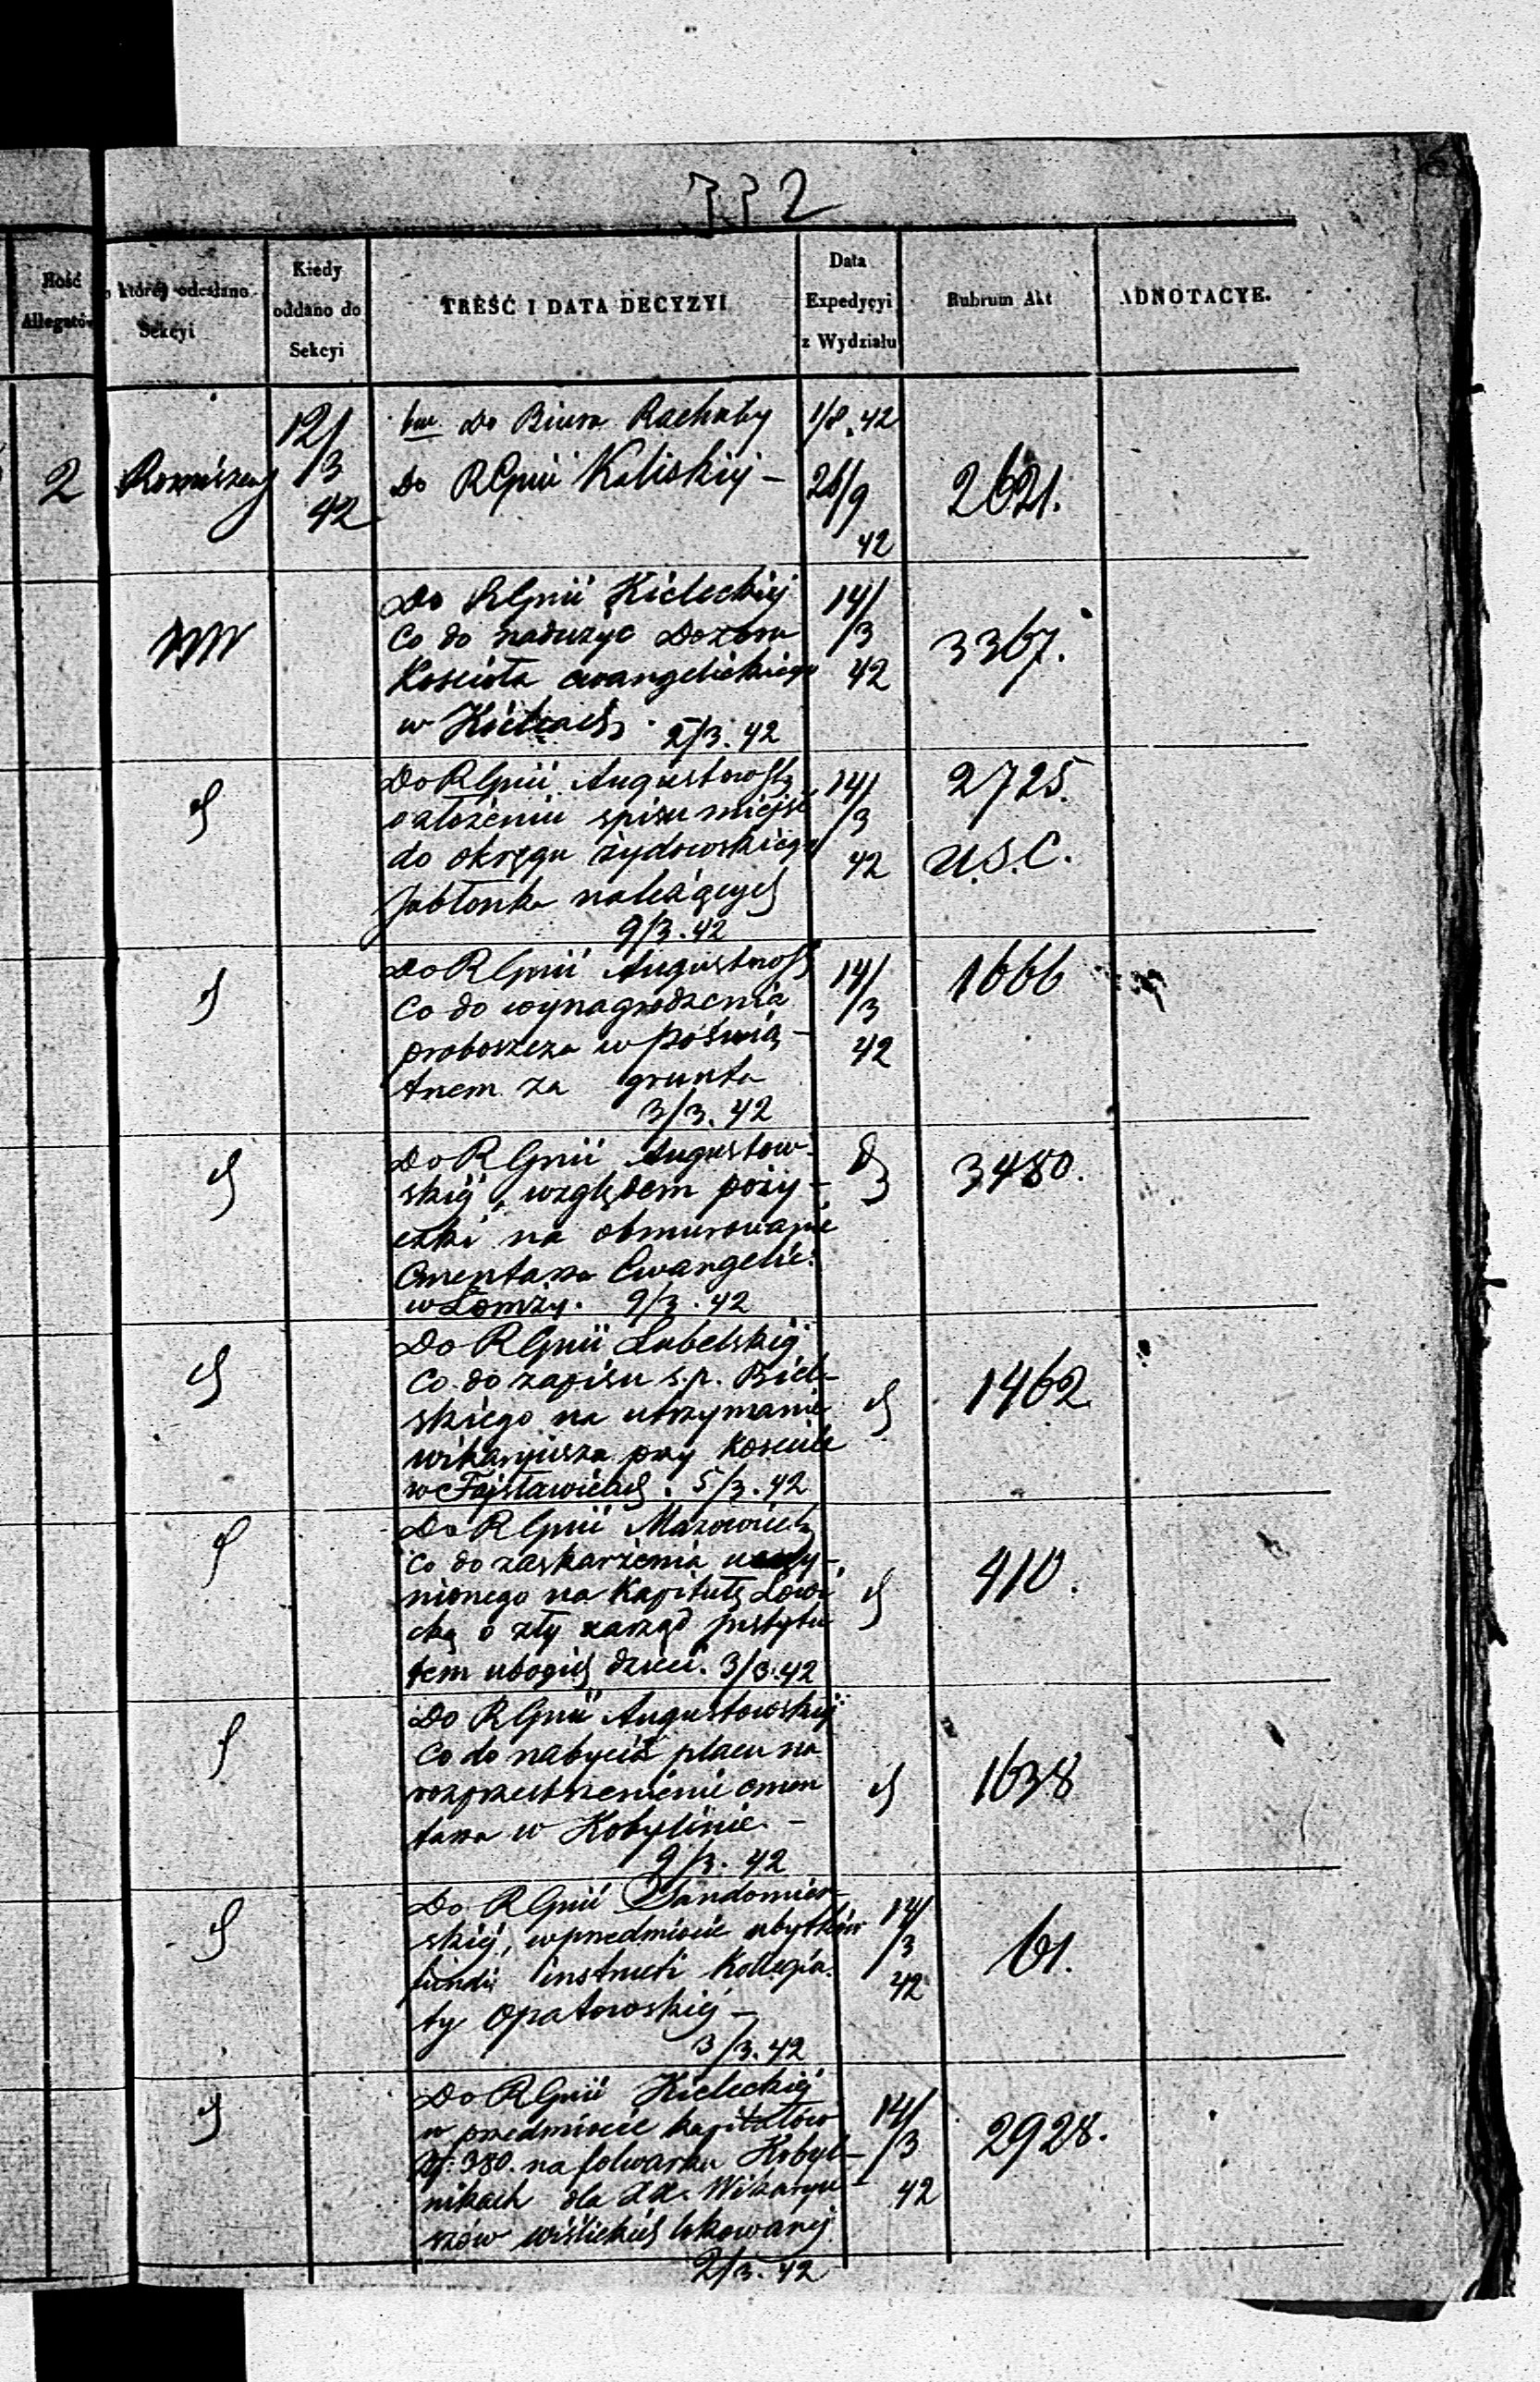 332
Ilość
Allegatów
o której odesłano
Sekcyi
Kiedy
oddano do
Sekcyi
TREŚĆ I DATA DECYZYI
Data
Expedycyi
z Wydziału
Rubrum Akt
ADNOTACYE.
2
12/
/3
42
do Biura Rachuby
do RGnii Kaliskiej –
1/8.42
26/9
42
2621.
Do RGnii Kieleckiej
Co do nadużyć Dozoru
Kościoła ewangelickiego
w Kielcach.
2/3.42
14/
/3
42
3367.
Do RGnii
o złożeniu spisu miejsc
do okręgu żydowskiego
Jabłonka należących
9/3.42
14/
/3
42
2725.
U.S.C.
Do RGnii
Co do wynagrodzenia
proboszcza w Poświą–
tnem za grunta
3/3.42
14/
/3
42
1666
Do RGnii Augustow–
skiej, względem poży–
czki na obmurowanie
Cmentarza Ewangelic:
w Łomży. 9/3.42
3480.
Do RGnii Lubelskiej
Co do zapisu s.p. Biel–
skiego na utrzymanie
wikaryusza przy Kościele
w Fajsławicach. 5/3.42
1462.
Do RGnii
Co do zaskarżenia uczy–
nionego na Kapitułę Łowi
cką o zły zarząd Instytu
tem ubogich dzieci. 3/3.42
410.
Do RGnii Augustowskiej
Co do nabycia placu na
rozprzestrzenienie cmen
tarza w Kobylinie. –
9/3.42
1638
Do RGnii Sandomier–
skiej, w przedmiocie ubytków
fundi instructi Kollegia–
ty Opatowskiej –
3/3.42
14/
/3
42
61.
Do RGnii Kieleckiej
w przedmiocie kapitałów
380. na folwarku Kobyl–
nikach dla XX. Wikaryu–
szów wiślickich lokowanej
2/3.42
14/
/3
42
2928.